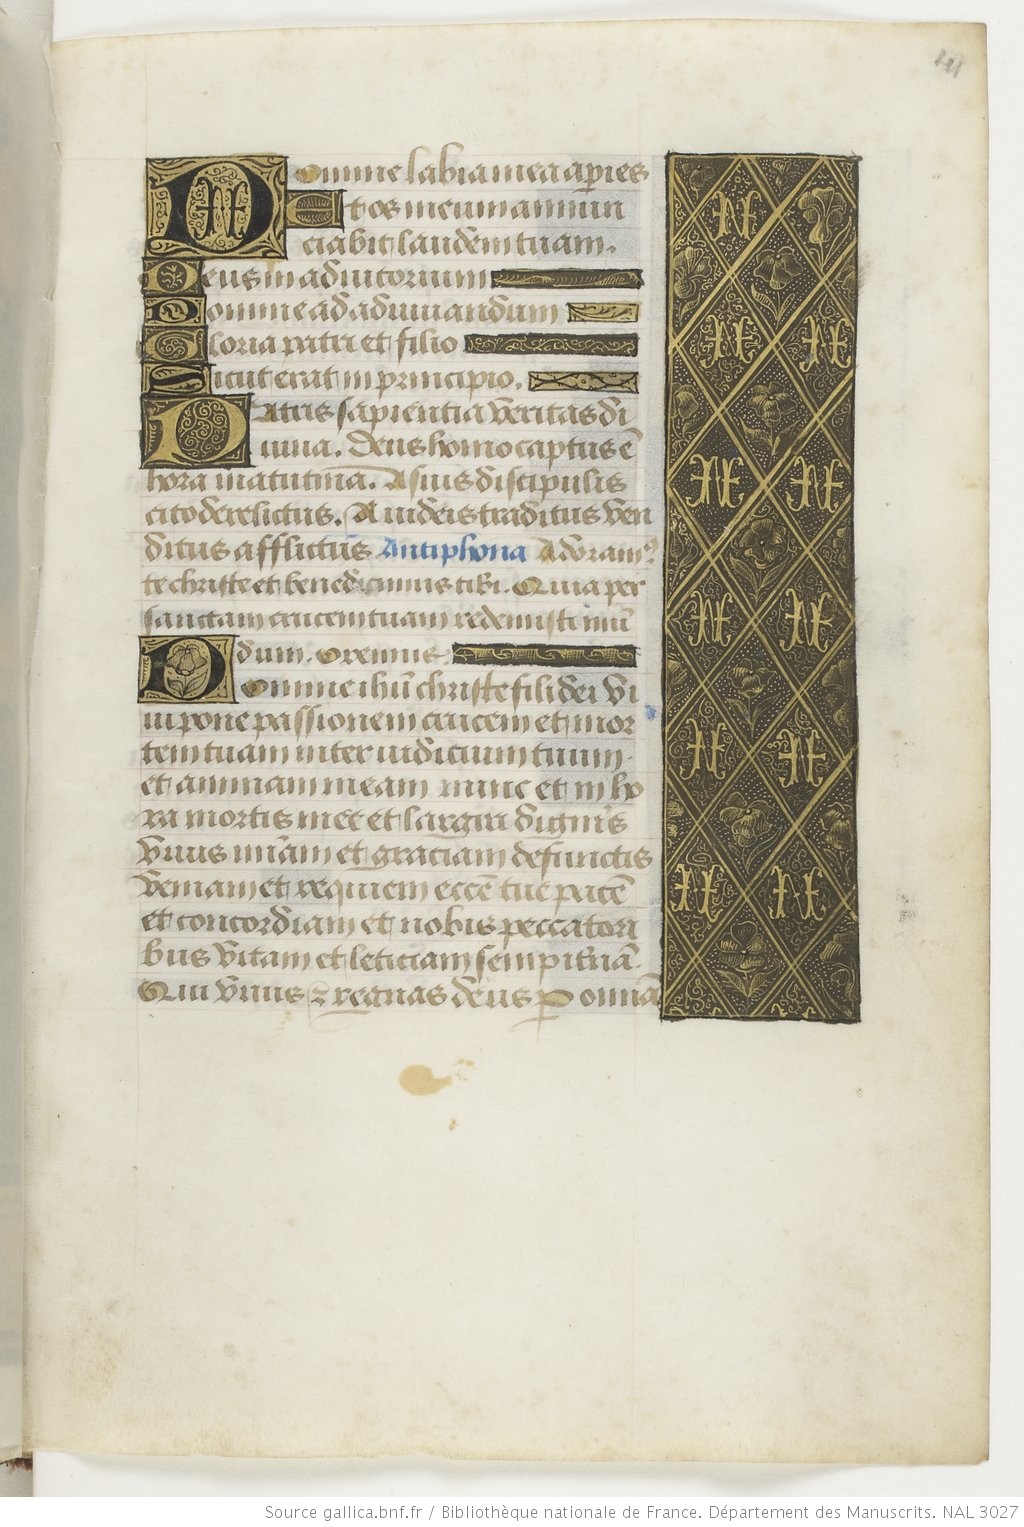 141
Domine labia mea aperies
Et os meum annun
ciabit laudem tuam.
Deus in adiutorium
Domine ad adiuuandum
Gloria patri et filio
Sicut erat in principio.
Patris sapientia veritas di
uina. Deus homo captus ē
hora matutina. A suis discipulis
cito derelictus. A iudeis traditus ven
ditus afflictus Antiphona Adoram9
te christe et benedicimus tibi. Quia per
sanctam crucem tuam redemisti mū
dum. Oremus.
Domine ihū christe fili dei vi
ui pone passionem crucem et mor
tem tuam inter iudicium tuum
et animam meam nunc et in ho
ra mortis mee et largiri digneris
viuis mīam et graciam defunctis
veniam et requiem eccē tue pacē
et concordiam et nobis peccatori
bus vitam et leticiam sempiternā.
Qui viuis z regnas deus Per omnia
Source gallica.bnf.fr / Bibliothèque nationale de France. Département des Manuscrits. NAL 3027